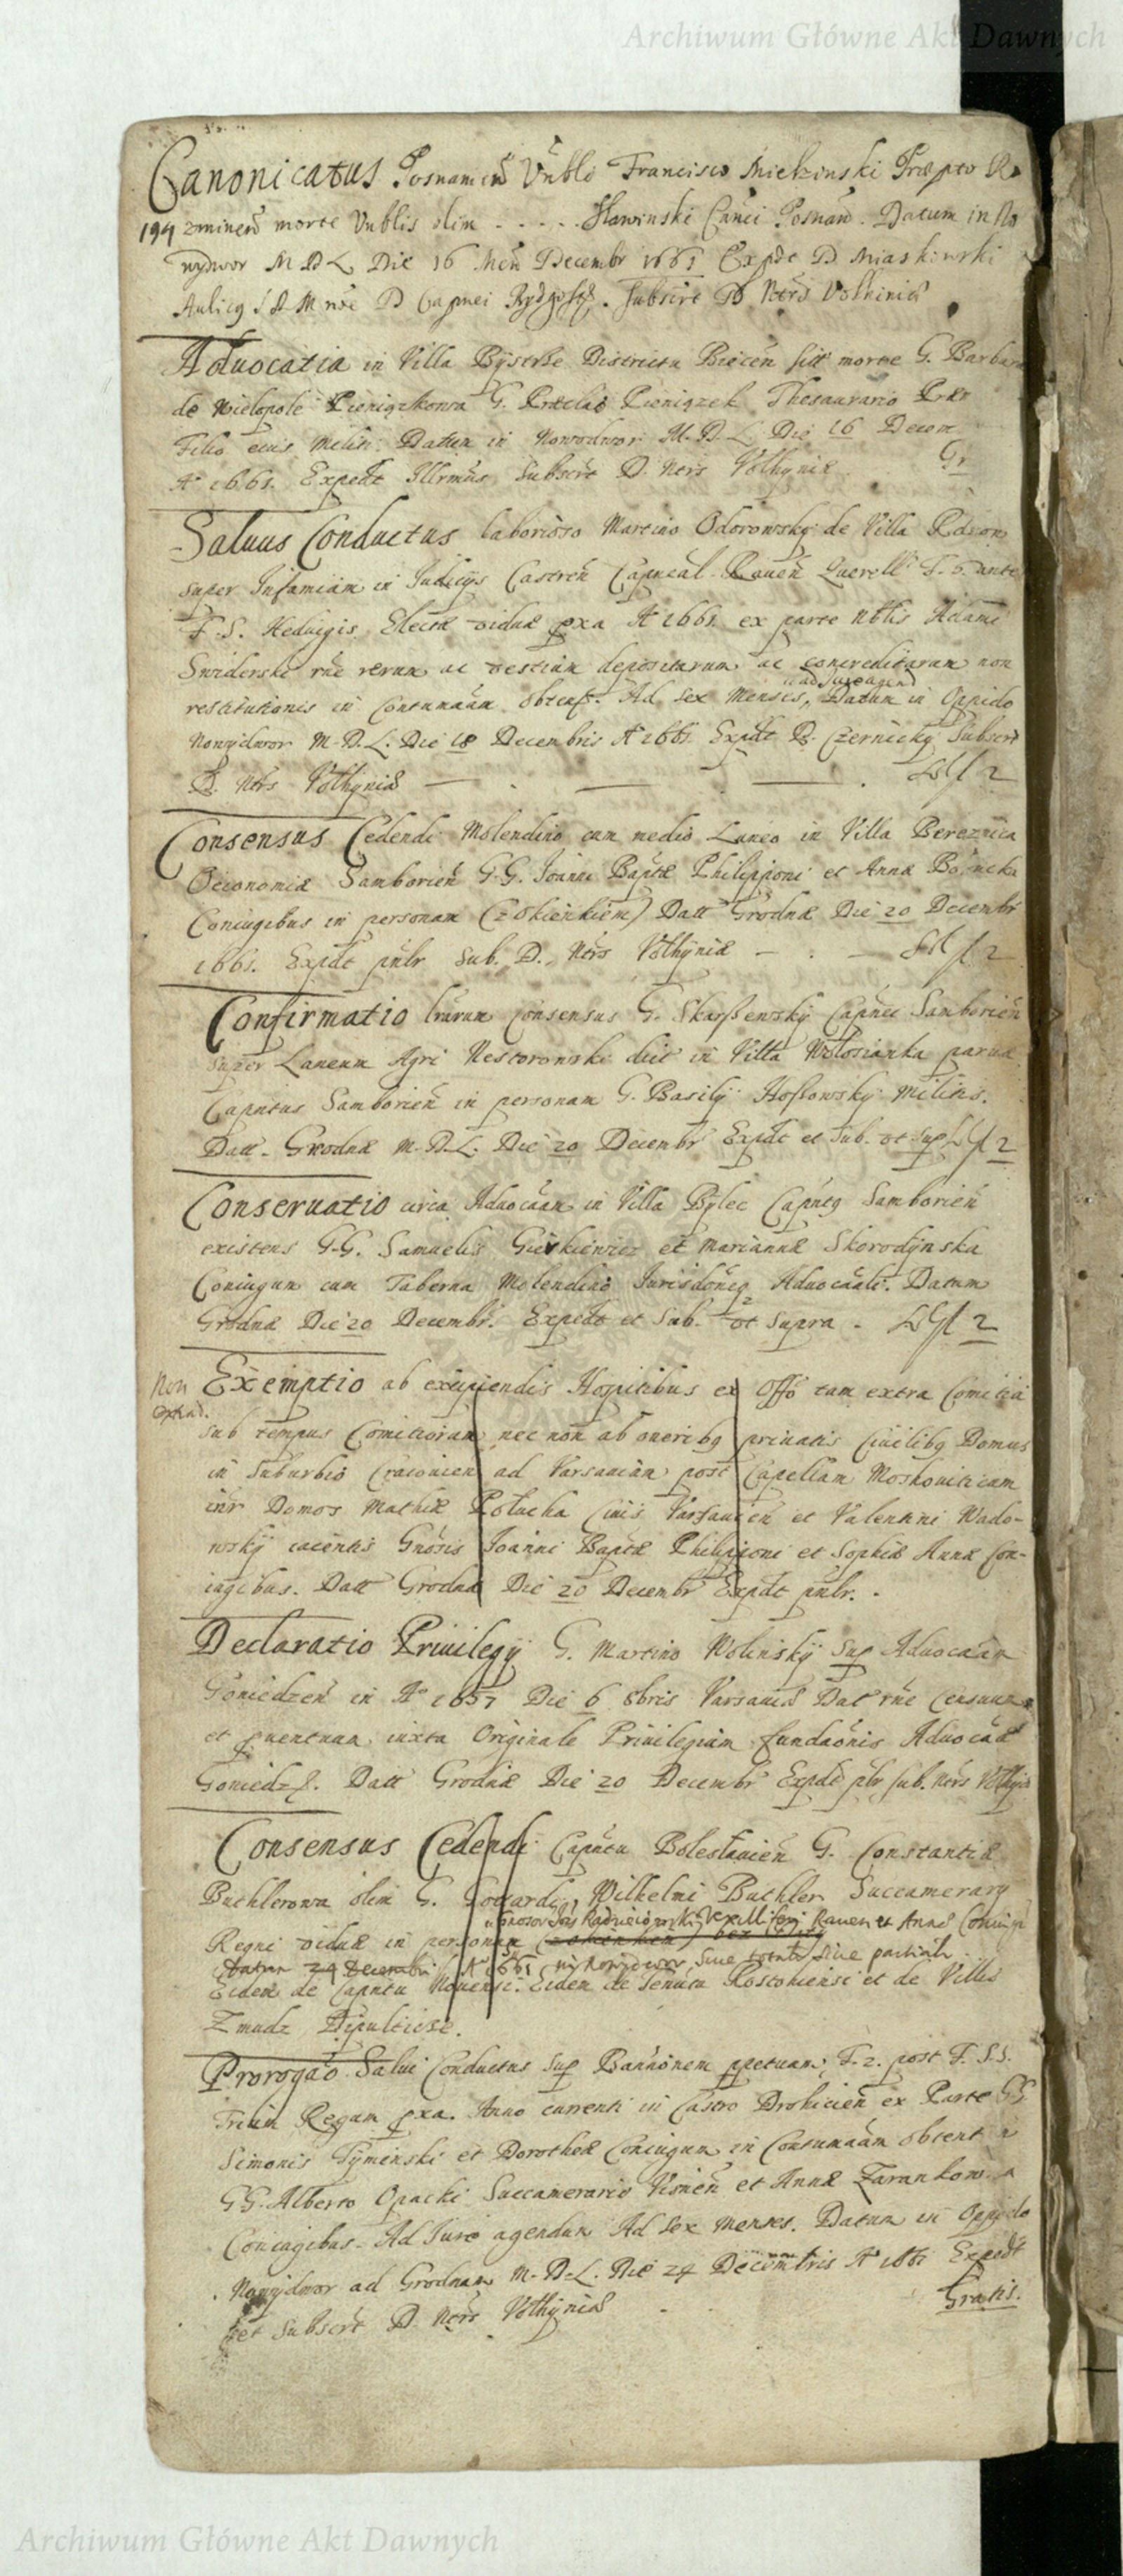 Archiwum Główne Akt Dawnych
Canonicatus Posnanien Vnbli Francisco Mielzinski Præpto Ro
194 zminen morte Vnblis olim - . - . . Slawinski Canci Posnan. Datum in No
wydwor M D L Die 16 Men Decembr 1661 Expdt D. Miaskowski
Aulicq S R M nõe D Capnei Bydgost. Subscrt D Ntrs Volhiniæ
Aduocatia in Villa Bystrze Districtu Biecen sitæ morte G. Barbaræ
de Wielopole Pieniązkowa G. Præclao Pieniązek Thesaurario
Filio eius Militi. Datum in Nowodwor M. D. L. Die 16 Decem
Aº 1661. Expedt Illrmus Subscrt D. Ntrs Volhyniæ Gr
Saluus Conductus laborioso Martino Odorowsky de Villa
super Infamiam in Iudicijs Castren Capneal Rauen Querell F. 6. ante
F. S. Heduigis Electæ viduæ pxa Aº 1661. ex parte Nblis Adami
Swiderski rne rerum ac vestium depositarum ac concreditarum non
ad Iure agend
restitutionis in Contumaam obtent. Ad sex Menses, Datum in Oppido
Nowydwor M. D. L. Die 18 Decembris Aº 1661 Expdt D. Czernicky Subscrt
D. Ntrs Volhyniæ
Consensus Cedendi Molendino cum medio Laneo in Villa Bereznica
Oeconomiæ Samborien G.G. Ioanni Baptæ Philipponi et Annæ
Coniugibus in personam (z Okienkiem) Datt Grodnæ Die 20 Decembr
1661. Expdt pnlr Sub. D. Ntrs Volhyniæ
Confirmatio lrarum Consensus G. Skarszewsky Capnei Samborien
super Laneum Agri Nestorowski dict in Villa Wolosianka parua
Capntus Samborien in personam G. Basilij Hoszowsky Militis.
Datt. Grodnæ M. D. L. Die 20 Decembr Expdt et Sub. vt sup
Conseruatio circa Aduocãam in Villa Bylec Capntq Samborien
existens G.G. Samuelis Gieskiewicz et Mariannæ Skorodynska
Coniugum cum Taberna Molendino Iurisdõneq Aduocãali. Datum
Grodnæ Die 20 Decembr. Expedt et Sub. vt supra
Non extrad.
Exemptio ab excipiendis Hospitibus ex Offo tam extra Comitia
sub tempus Comitiorum nec non ab oneribq priuatis Ciuilibq Domus
in Suburbio Cracouien ad Varsauiam post Capellam Moskouiticam
intr Domos Mathiæ Kotucha Ciuis Varsauien et Valentini Wado-
wskij iacentis Gnosis Ioanni Baptæ Philipponi et Sophiæ Annæ Con-
iugibus. Datt Grodnæ Die 20 Decembr Expdt pnlr.
Declaratio Priuilegij G. Martino Wolinskij Sup Aduocãam
Goniedzen in Aº 1657 Die 6 8bris Varsauiæ Dat rne Censuum
et puentuum iuxta Originale Priuilegium fundaonis Aduocaæ
Goniedz. Datt Grodnæ Die 20 Decembr Expdt pbr sub. Ntrs Volhyniæ
Consensus Cedendi Capntu Boleslauien G. Constantiæ
Buchlerowa olim G. Gottardi Wilhelmi Buchler Succamerary
Gnosor Ios Radzieiowski Vexilliferi Rauen et Annæ Coniugu
Regni viduæ in personam (z okienkiem)
Datum 24 Decembri Aº 1661 in Nowydwor, Siue totali siue partiali
Eidem de Capntu Nouensi. Eidem de Tenuta Rostokiensi et de Villis
Zmudz
Prorogão Salui Conductus Sup Bannonem ppetuam, F. 2. post F. S.S.
Trium Regum pxa. Anno currenti in Castro Drohicien ex Parte GG
Simonis Tyminski et Dorotheæ Coniugum in Contumaam obtent
GG. Alberto Opacki Succamerario Visnen et Annæ Zarankow
Coniugibus. Ad Iure agendum Ad Sex Menses. Datum in Oppido
Nowydwor ad Grodnam M. D. L. Die 24 Decembris Aº 1661 Expedt
et Subscrt D. Ntrs Volhyniæ Gratis.
Archiwum Główne Akt Dawnych